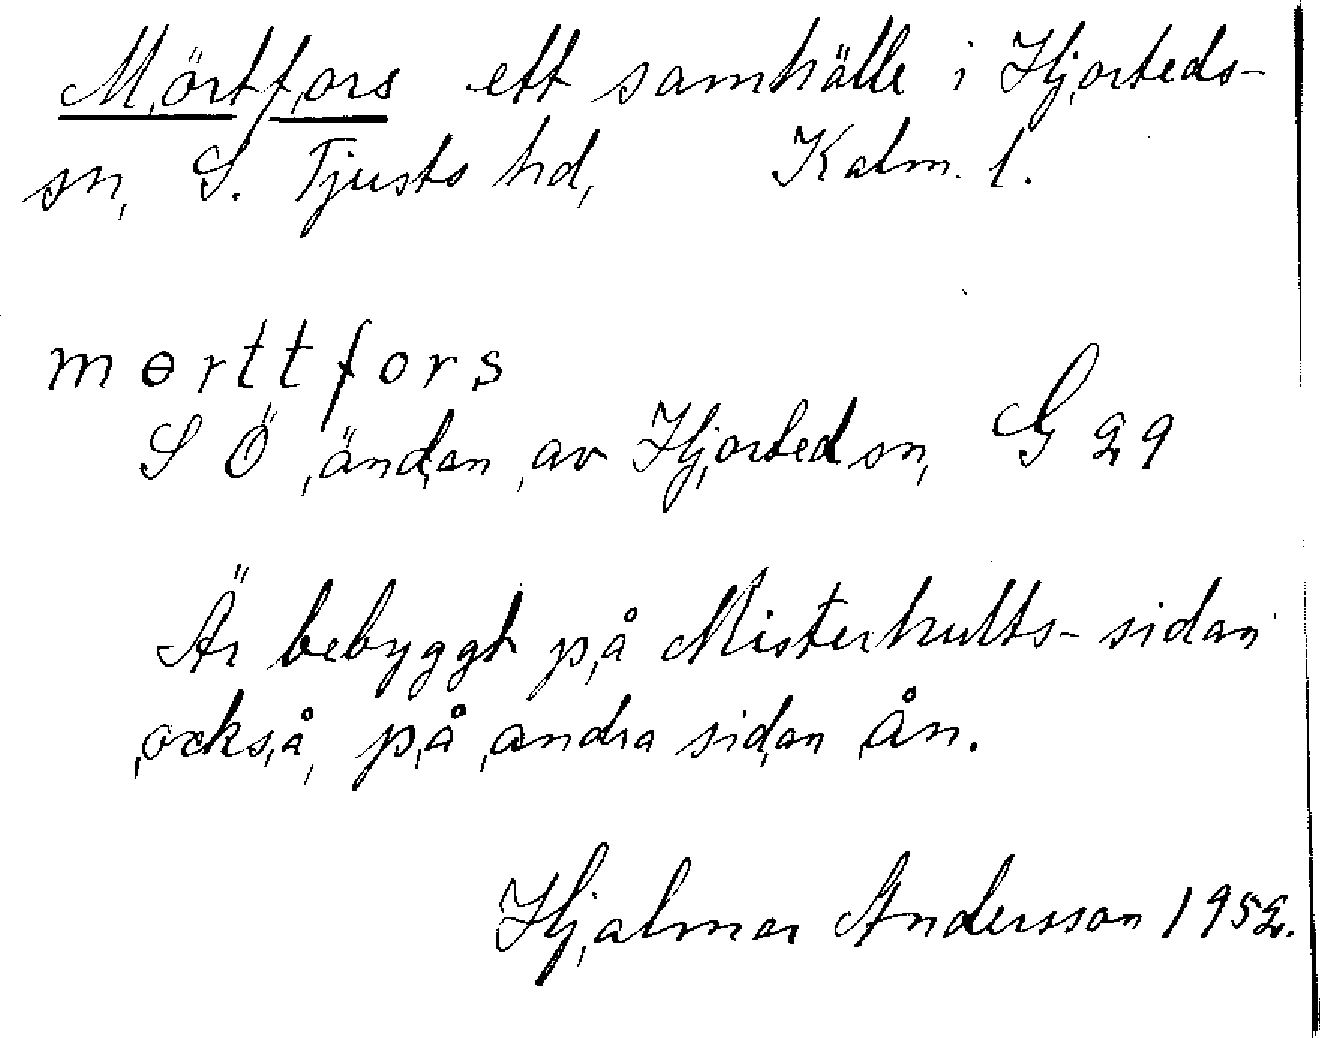 Mörtfors ett samhälle i Hjorteds-
sn, S. Tjusts hd, Kalm. l.
mɵrttfors
S Ö ändan av Hjorted sn, G 29
Är bebyggt på Misterhults-sidan
också, på andra sidan ån.
Hjalmar Andersson 1952.